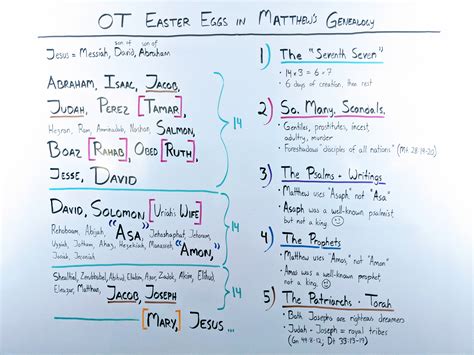 OT EASTER EGGS IN MATTHEW'S GENEALOGY
son of son of
JESUS = MESSIAH, DAVID, ABRAHAM
ABRAHAM, ISAAC, JACOB,
JUDAH, PEREZ [TAMAR],
Hezron, Ram, Amminadab, Nashon, SALMON,
BOAZ [RAHAB], OBED [RUTH],
JESSE, DAVID
14
DAVID, SOLOMON [Uriah's WIFE]
Rehoboam, Abijah, "ASA", Jehoshaphat, Jehoram,
Uzziah, Jotham, Ahaz, Hezekiah, Manasseh, "AMON,"
Josiah, Jeconiah
14
Shealtiel, Zerubbabel, Abiud, Eliakim, Azor, Zadok, Akim, Elihud,
Eleazar, Matthan, JACOB, JOSEPH
14
[MARY,] JESUS...
1) The "Seventh Seven"
• 14 x 3 = 6 x 7
• 6 days of creation, then rest
2) So. Many. Scandals.
• Gentiles, prostitutes, incest,
adultry, murder
• Foreshadows "disciples of all nations" (Mt. 28:19-20)
3) The Psalms + Writings
• Matthew uses "Asaph" not "Asa"
• Asaph was a well-known psalmist
but not a king
4) The Prophets
• Matthew uses "Amos", not "Amon"
• Amos was a well-known prophet,
not a king
5) The Patriarchs + Torah
• Both Josephs are righteous dreamers
• Judah + Joseph = royal tribes
(Gn 49:8-12; Dt 33:13-17)